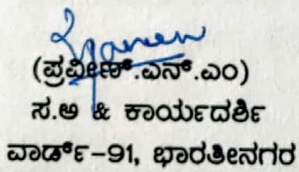 (ಪ್ರವೀಣ್.ಎನ್.ಎಂ)
ಸ.ಅ & ಕಾರ್ಯದರ್ಶಿ
ವಾರ್ಡ್-91, ಭಾರತೀನಗರ